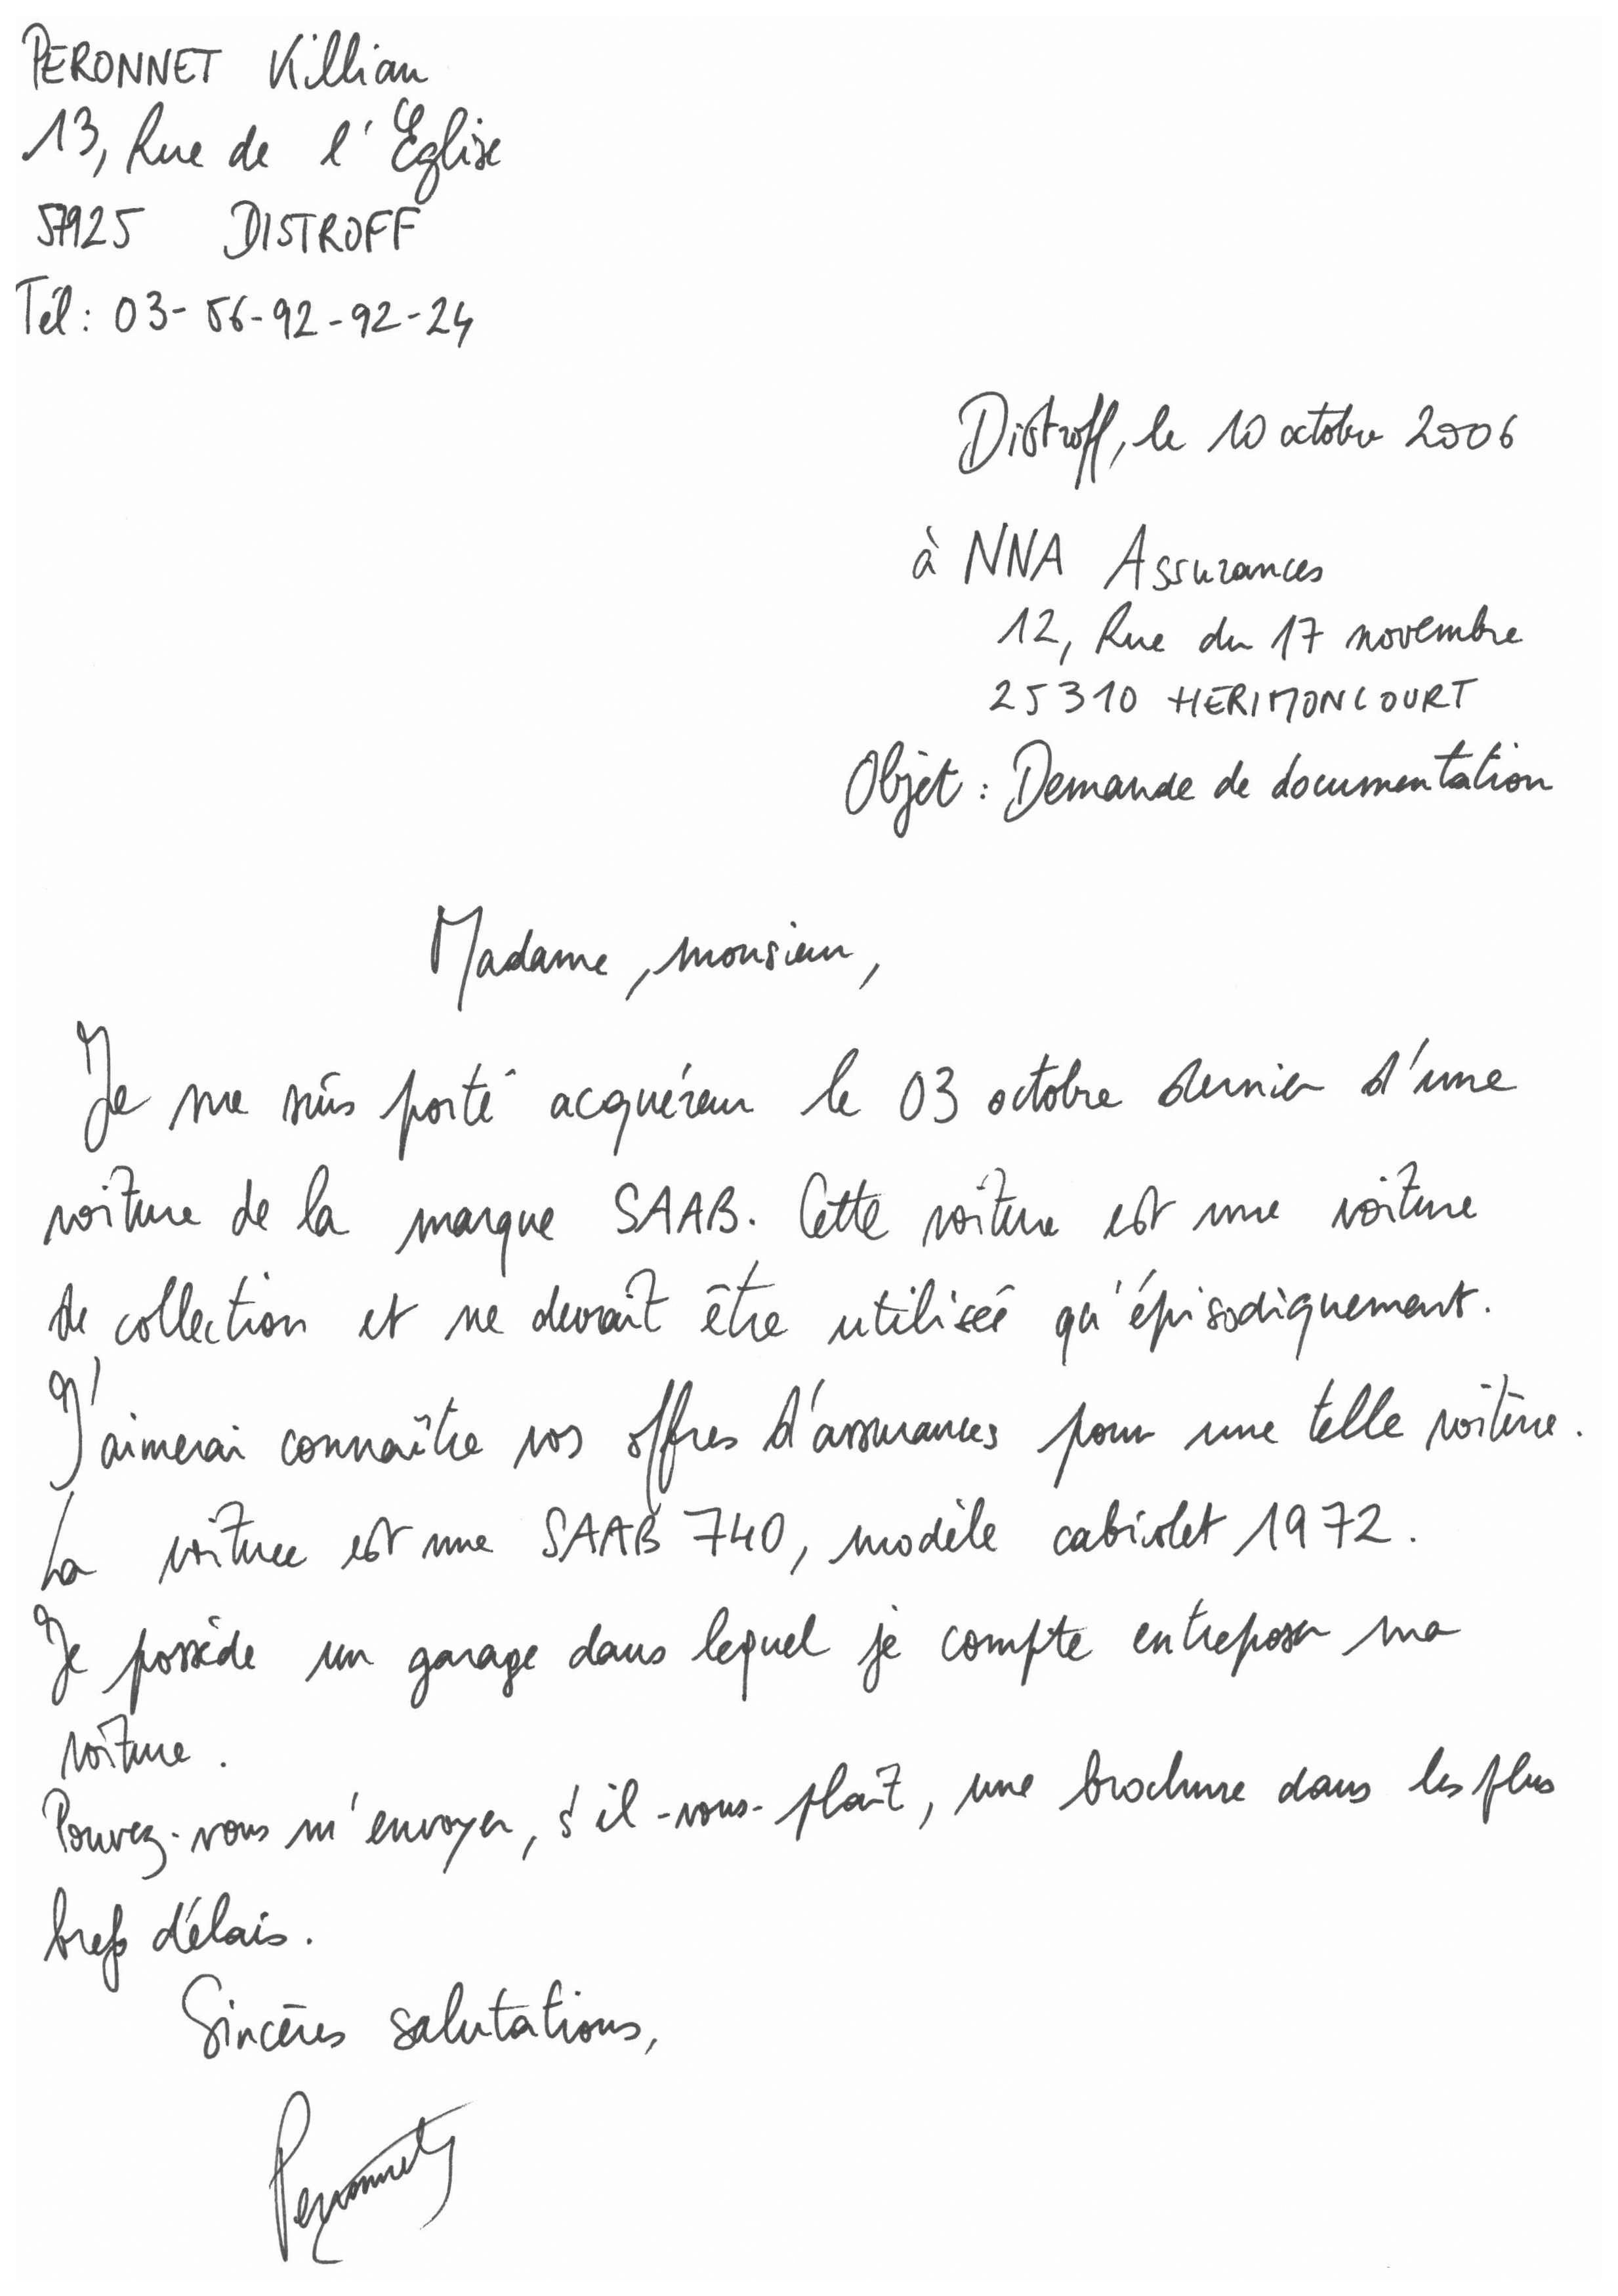 PERONNET Killian
13, Rue de l'Eglise
57925 DISTROFF
Tél : 03-56-92-92-24
Distroff, le 10 octobre 2006
à NNA Assurances
12, Rue du 17 novembre
25310 HERIMONCOURT
Objet : Demande de documentation
Madame, monsieur,
Je me suis porté acquéreur le 03 octobre dernier d'une
voiture de la marque SAAB. Cette voiture est une voiture
de collection et ne devrait être utilisée qu'épisodiquement.
J'aimerai connaître vos offres d'assurances pour une telle voiture.
La voiture est une SAAB 740, modèle cabriolet 1972.
Je possède un garage dans lequel je compte entreposer ma
voiture.
Pouvez-vous m'envoyer, s'il-vous-plaît, une brochure dans les plus
brefs délais.
Sincères salutations,
Peronnet